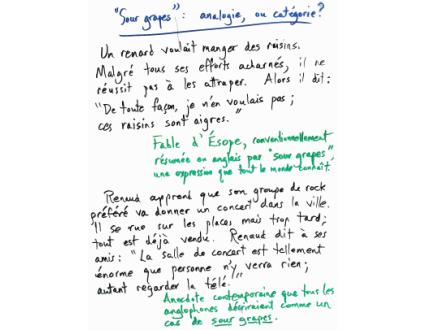 "Sour grapes": analogie, ou catégorie?
Un renard voulait manger des raisins.
Malgré tous ses efforts acharnés, il ne
réussit pas à les attraper. Alors il dit:
"De toute façon, je n'en voulais pas;
ces raisins sont aigres."
Fable d'Ésope, conventionnellement
résumée en anglais par "sour grapes",
une expression que tout le monde connaît.
Renaud apprend que son groupe de rock
préféré va donner un concert dans la ville.
Il se rue sur les places, mais trop tard;
tout est déjà vendu. Renaud dit à ses
amis: "La salle de concert est tellement
énorme que personne n'y verra rien;
autant regarder la télé."
Anecdote contemporaine que tous les
anglophones décriraient comme un
cas de sour grapes.